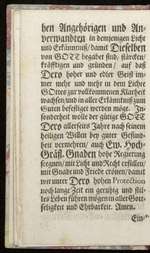 hen Angehörigen und An-
verwandten in demjenigen Licht
und Erkäntnuß/ damit Dieselben
von GOTT begabet sind, stärcken/
kräfftigen und gründen/ auf daß
Dero hoher und edler Geist im-
mer mehr und mehr in dem Lichte
GOttes zur vollkommenen Klarheit
wachsen und in aller Erkäntnuß zum
Guten befestiget werden möge. In-
sonderheit wolle der gütige GOTT
Dero allerseits Jahre nach seinem
heiligen Willen bey guter Gesund-
heit vermehren/ auch Ew. Hoch-
Gräfl. Gnaden hohe Regierung
segnen/ mit Licht und Recht erfüllen/
mit Gnade und Friede crönen/ damit
wir unter Dero hohen Protection
noch lange Zeit ein geruhig und stil-
les Leben führen mögen in aller Gott-
seligkeit und Ehrbarkeit. Amen.
Ein